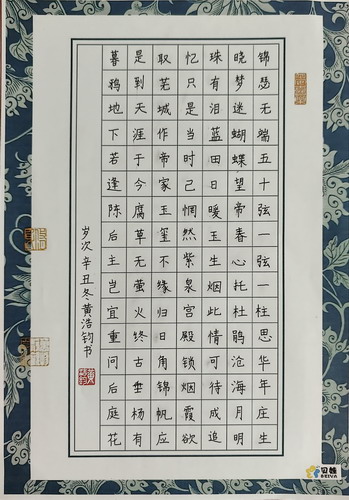 锦瑟无端五十弦一弦一柱思华年庄生
晓梦迷蝴蝶望帝春心托杜鹃沧海月明
珠有泪蓝田日暖玉生烟此情可待成追
忆只是当时已惘然紫泉宫殿锁烟霞欲
取芜城作帝家玉玺不缘归日角锦帆应
是到天涯于今腐草无萤火终古垂杨有
暮鸦地下若逢陈后主岂宜重问后庭花
岁次辛丑冬黄浩钧书